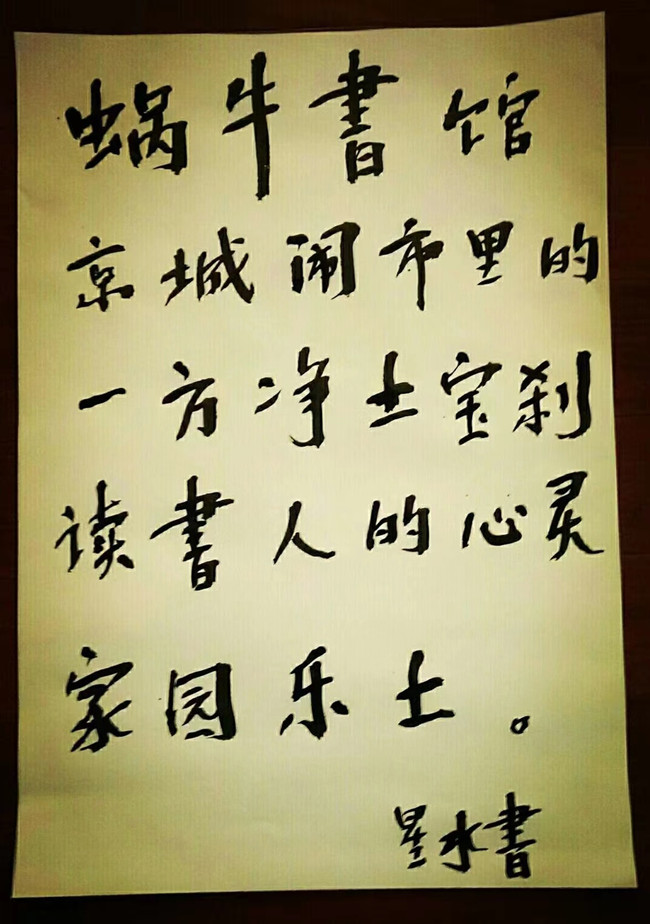 蜗牛書馆
京城闹市里的
一方净土宝刹
读書人的心灵
家园乐土。
星水書